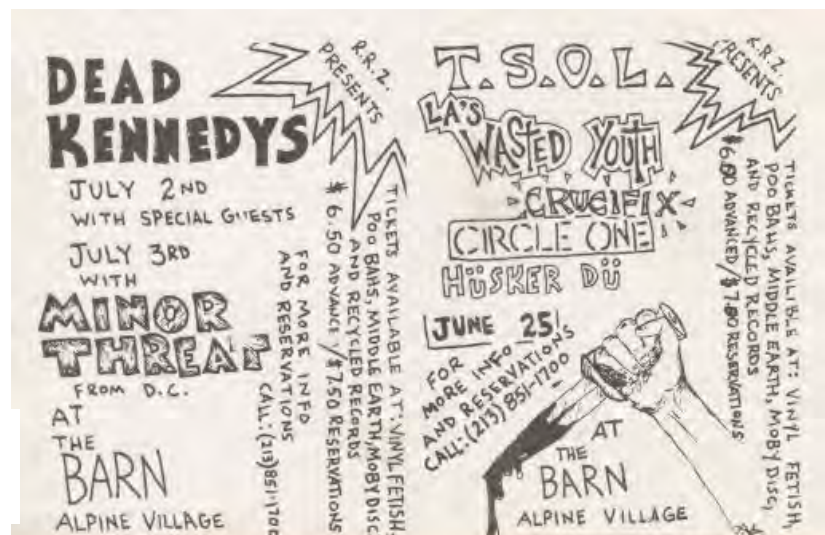 DEAD
KENNEDYS
JULY 2ND
WITH SPECIAL GUESTS
JULY 3RD
WITH
MINOR
THREAT
FROM D.C.
AT
THE
BARN
ALPINE VILLAGE
R.R.Z.
PRESENTS
TICKETS AVAILABLE AT: VINYL FETISH,
POO BAHS, MIDDLE EARTH, MOBY DISC
AND RECYCLED RECORDS
$6.50 ADVANCE /$7.50 RESERVATIONS
FOR MORE INFO
AND RESERVATIONS
CALL: (213) 851-1700
T.S.O.L.
LA'S
WASTED YOUTH
CRUCIFIX
CIRCLE ONE
HÜSKER DÜ
JUNE 25!
FOR
MORE INFO
AND RESERVATIONS
CALL: (213) 851-1700
AT
THE
BARN
ALPINE VILLAGE
R.R.Z.
PRESENTS
TICKETS AVAILIBLE AT: VINYL FETISH,
POO BAHS, MIDDLE EARTH, MOBY DISC,
AND RECYCLED RECORDS
ADVANCED/ RESERVATIONS